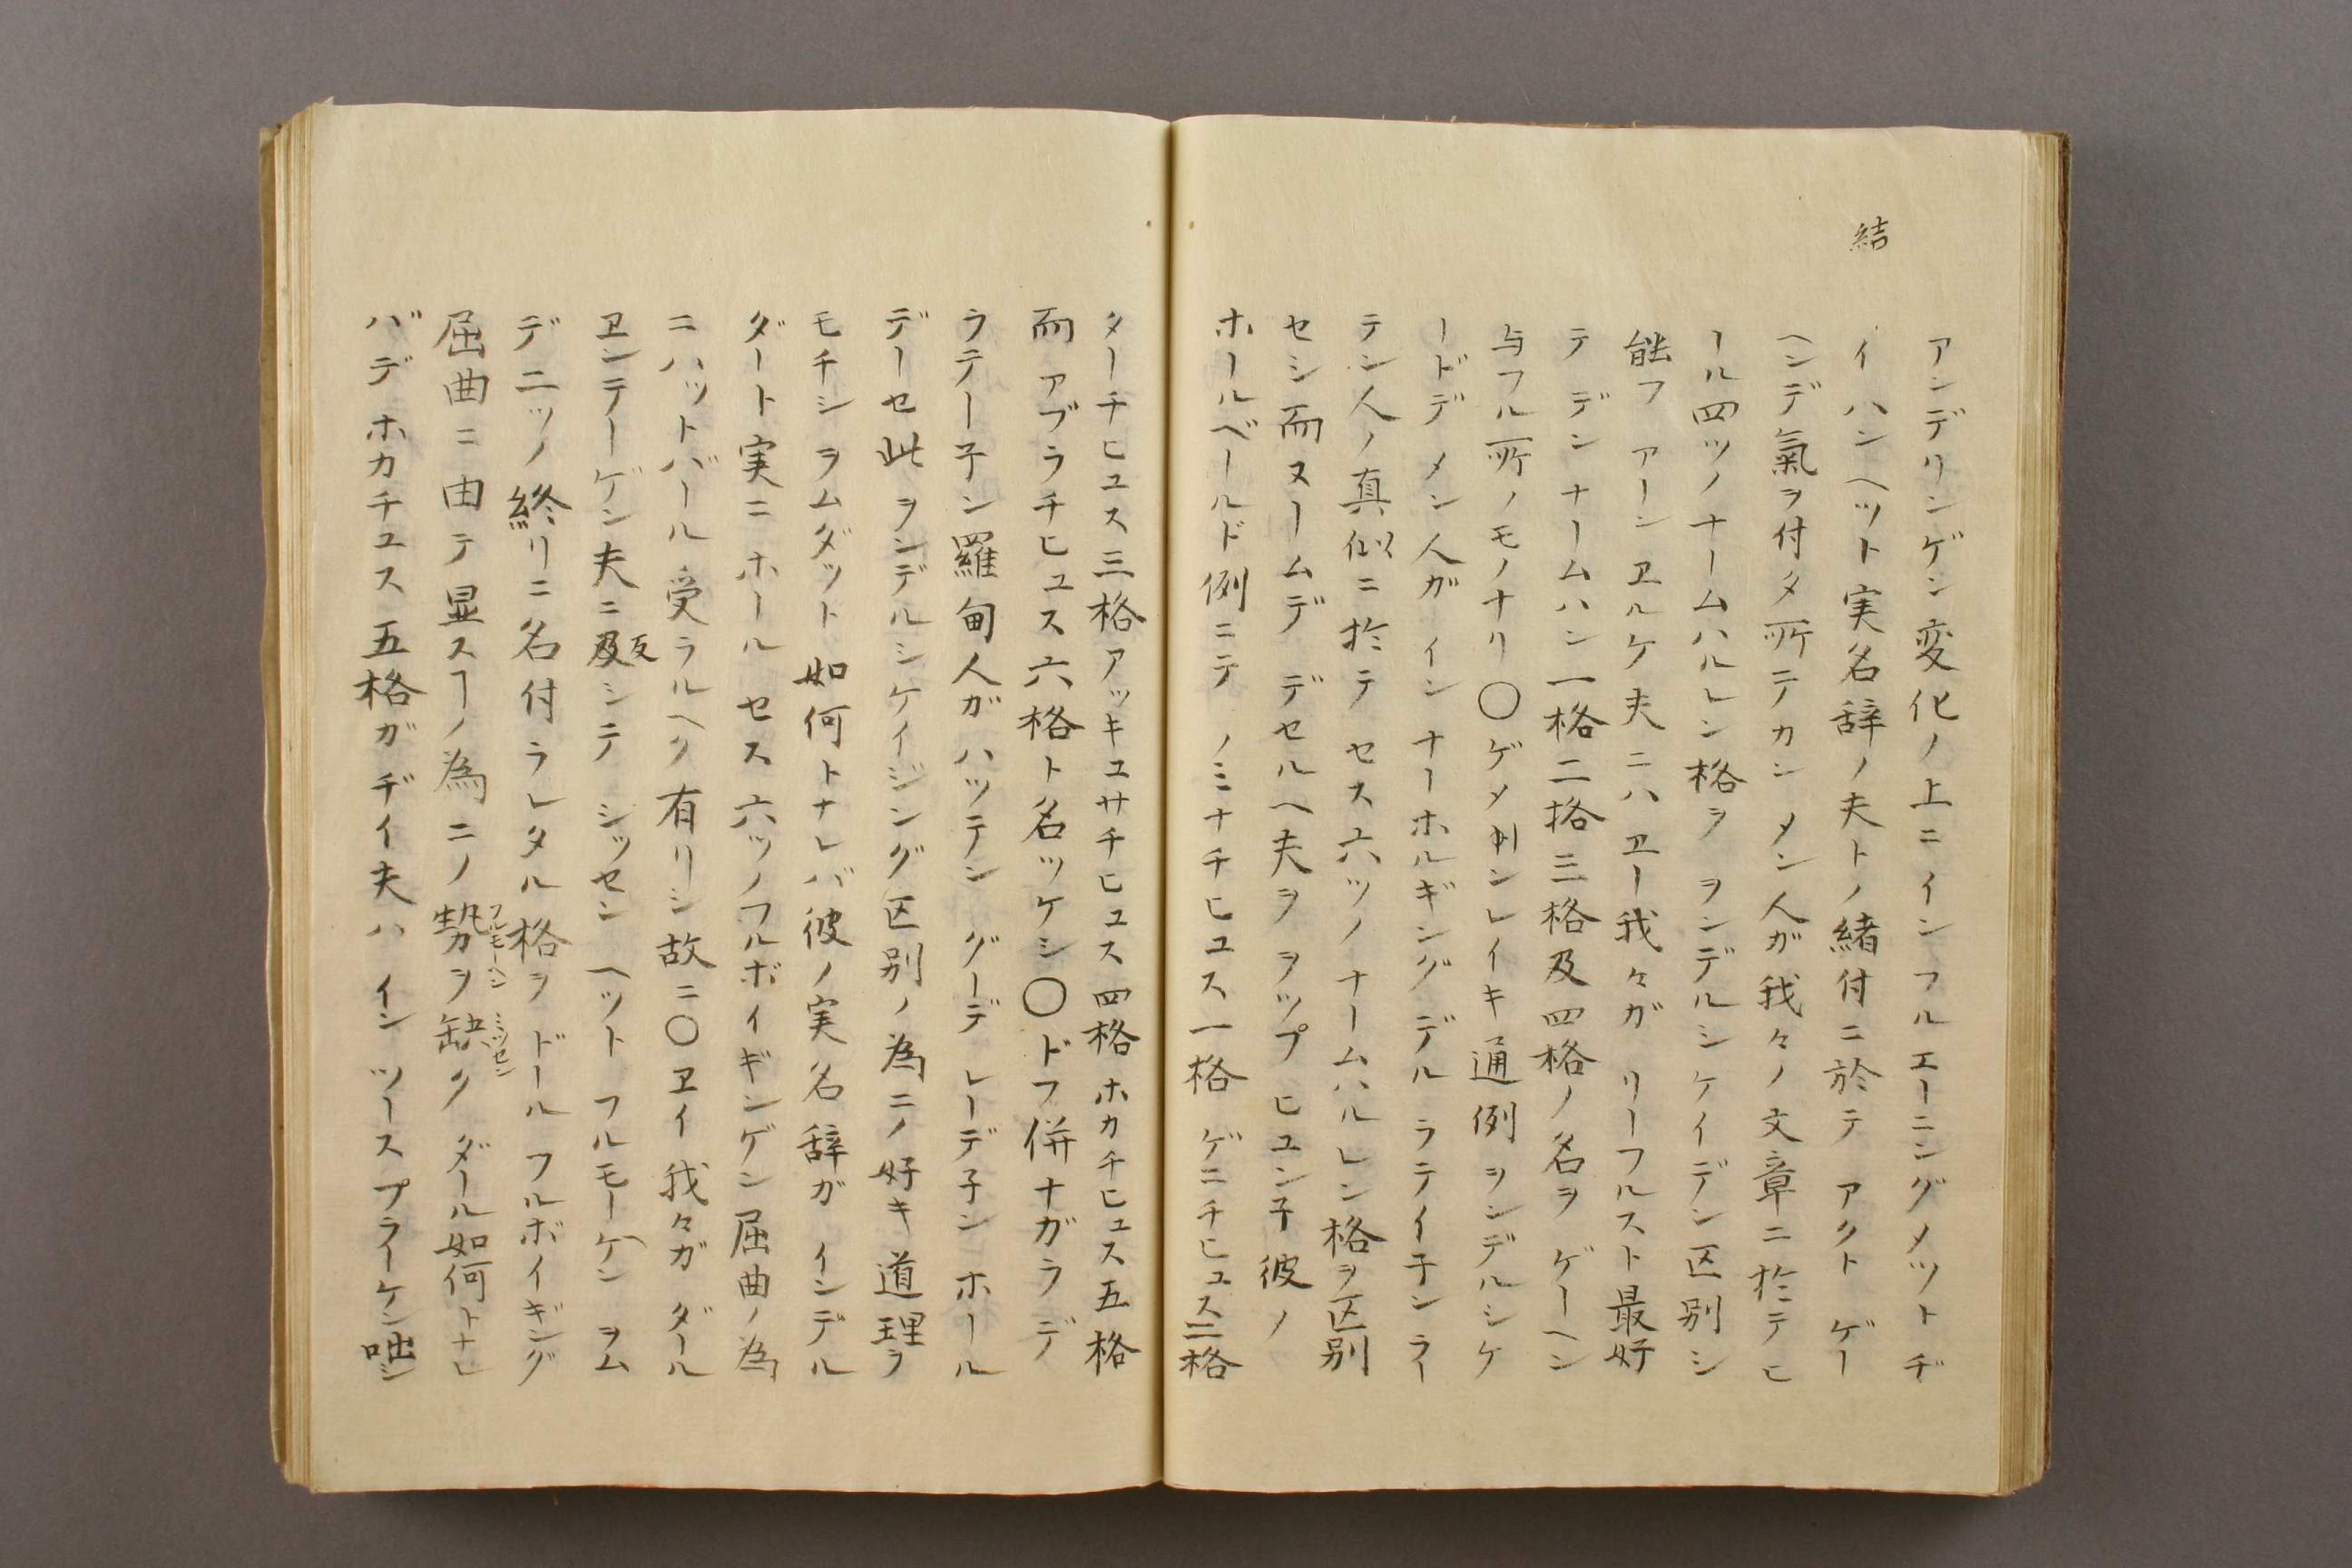 結
アンデリンゲン変化ノ上ニインフルエーニングメットヂ
イハンヘット実名辞ノ夫トノ緒付ニ於テ アクト ゲー
ヘンデ氣ヲ付タ所テカン メン人ガ我々ノ文章ニ於テヒ
ール四ツノナームハルレン格ヲ ヲンデルシケイデン区別シ
能フ アーン ヱルケ夫ニハヱー我々ガ リーフルスト最好
テ デンナームハン一格二格三格及四格ノ名ヲ ゲーヘン
与フル所ノモノナリ〇ゲメーンレイキ通例ヲンデルシケ
ードデメン人ガ イン ナーホルギング デル ラテイ子ン ラー
テン人ノ真似ニ於テ セス六ツノナームハルレン格ヲ区別
セシ而ヌームデ デセルヘ夫ヲ ヲップ ヒュン子彼ノ
ホールベールド例ニテ ノミナチヒュス一格 ゲニチヒュス二格
ターチヒュス三格アッキュサチヒュス四格ホカチヒュス五格
而アブラチヒュス六格ト名ツケシ〇ドフ併ナガラデ
ラテー子ン羅甸人ガハッテン グーデ レーデ子ン ホール
デーセ此ヲンデルシケイジング区別ノ為ニノ好キ道理ヲ
モチシヲムダット如何トナレバ彼ノ実名辞ガ インデル
ダート実ニホール セス六ツノフルボイギンゲン屈曲ノ為
ニハットバール受ラルヘク有リシ故ニ〇ヱイ我々ガ ダール
ヱンテーゲン夫ニ反シテ シッセン ヘット フルモーゲン ヲム
デ二ツノ終リニ名付ラレタル格ヲ ドール フルボイギング
屈曲ニ由テ显スヿノ為ニノ勢ヲ缺ク ダール如何トナレ
フルモーヘン ミッセン
バデホカチユス五格ガヂイ夫ハ イン ツースプラーケン咄シ